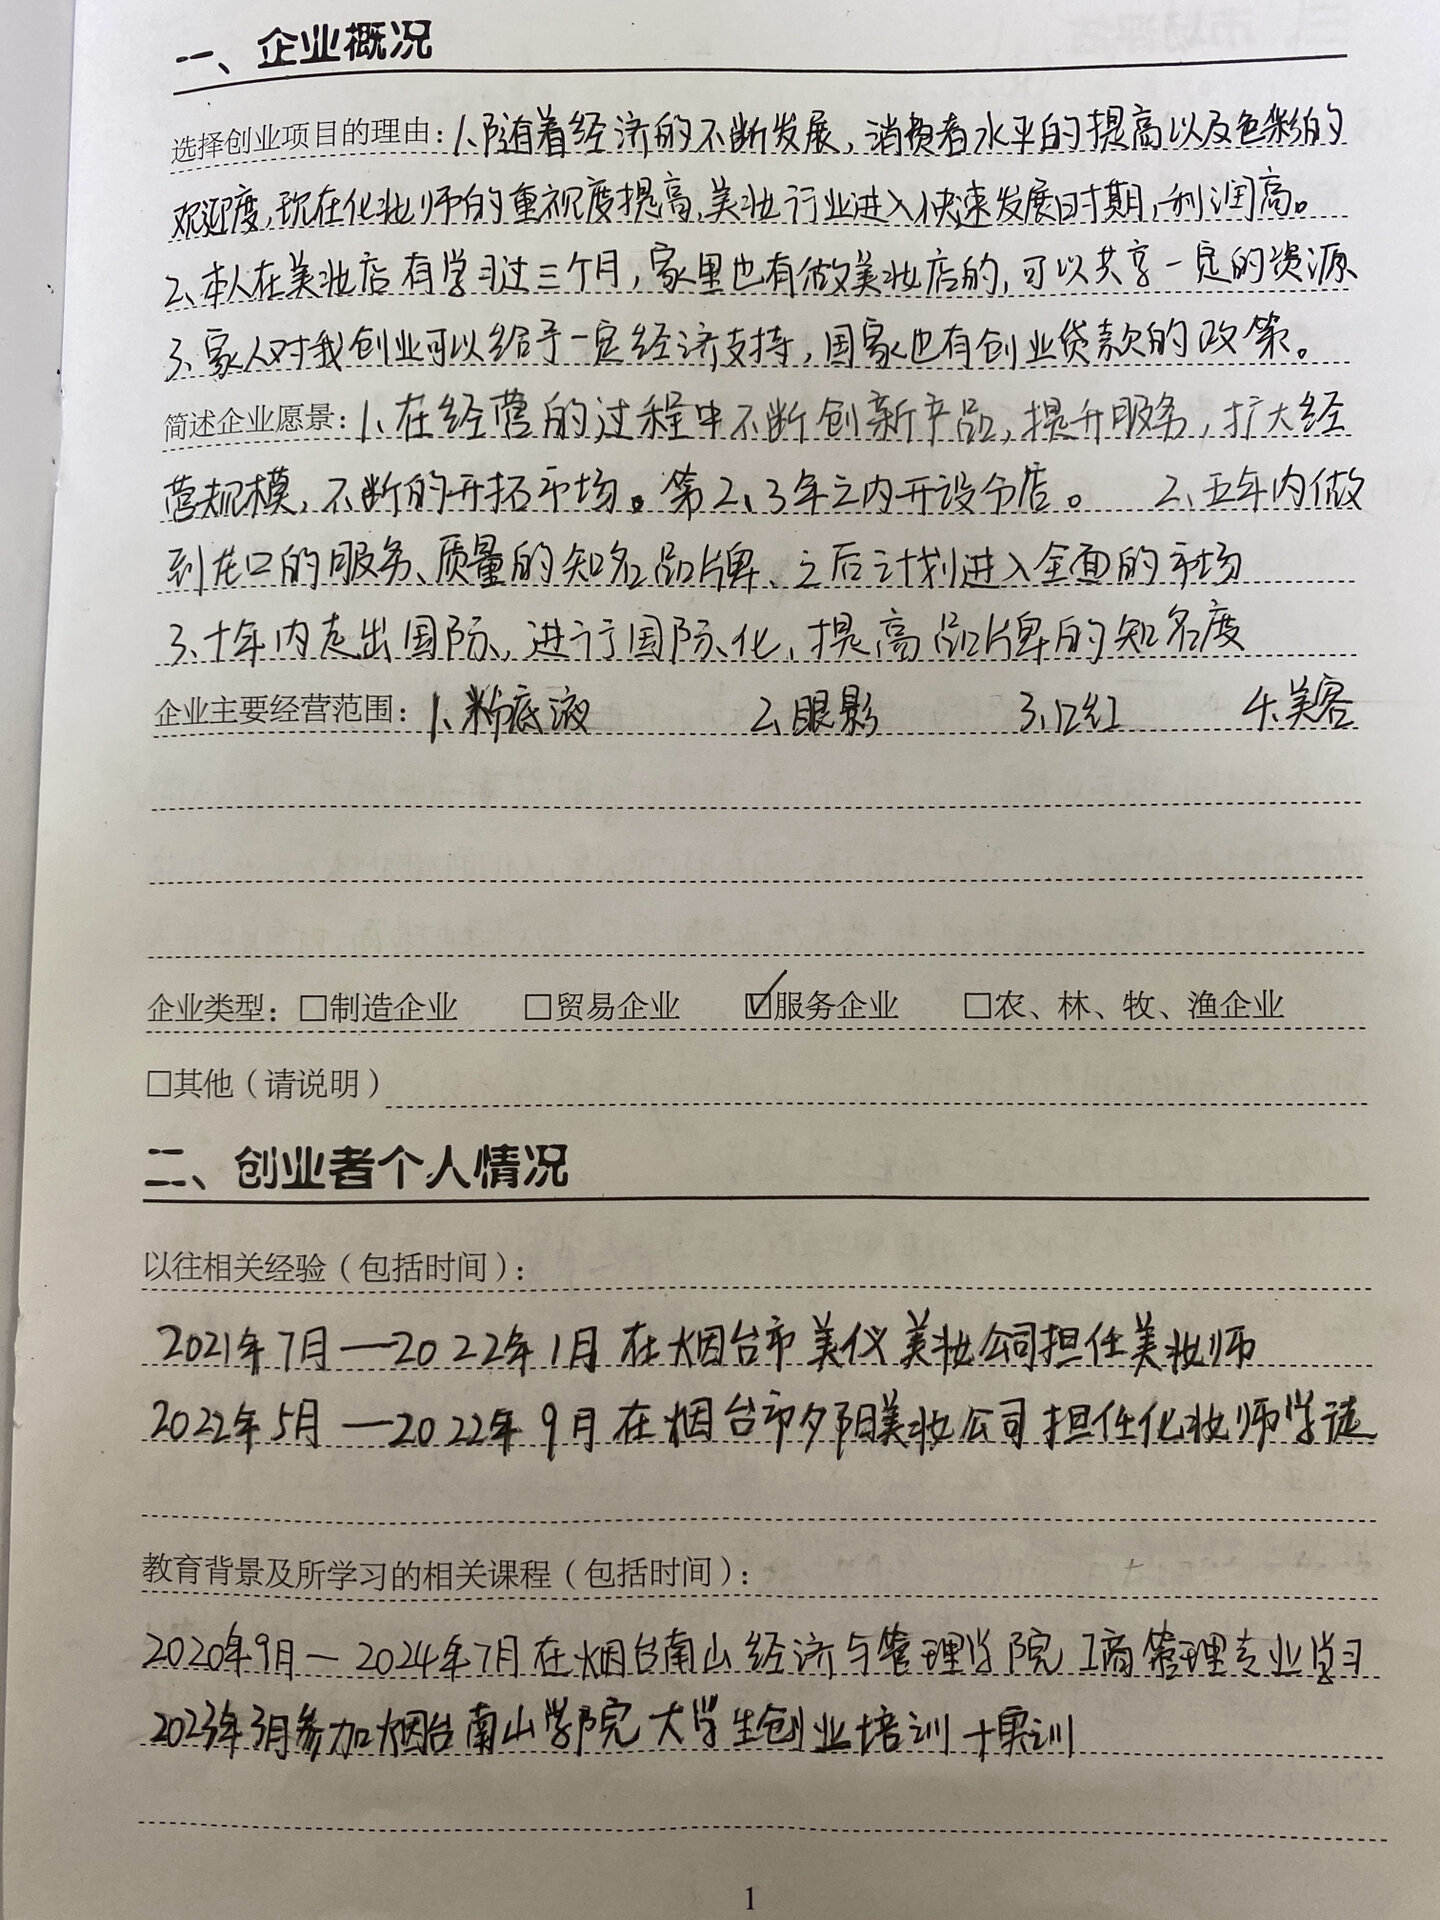 一、企业概况
选择创业项目的理由：1、随着经济的不断发展，消费者水平的提高以及色彩的
欢迎度，现在化妆师的重视度提高，美妆行业进入快速发展时期，利润高。
2、本人在美妆店有学习过三个月，家里也有做美妆店的，可以共享一定的资源
3、家人对我创业可以给予一定经济支持，国家也有创业贷款的政策。
简述企业愿景：1、在经营的过程中不断创新产品，提升服务，扩大经
营规模，不断的开拓市场。第2、3年之内开设分店。 2、五年内做
到龙口的服务、质量的知名品牌、之后计划进入全面的市场
3、十年内走出国际，进行国际化，提高品牌的知名度
企业主要经营范围：1、粉底液 2、眼影 3、口红 4、美容
企业类型：□制造企业 □贸易企业 ☑服务企业 □农、林、牧、渔企业
□其他（请说明）
二、创业者个人情况
以往相关经验（包括时间）：
2021年7月—2022年1月在烟台市美仪美妆公司担任美妆师
2022年5月—2022年9月在烟台市夕阳美妆公司担任化妆师学徒
教育背景及所学习的相关课程（包括时间）：
2020年9月—2024年7月在烟台南山经济与管理学院工商管理专业学习
2023年3月参加烟台南山学院大学生创业培训+实训
1